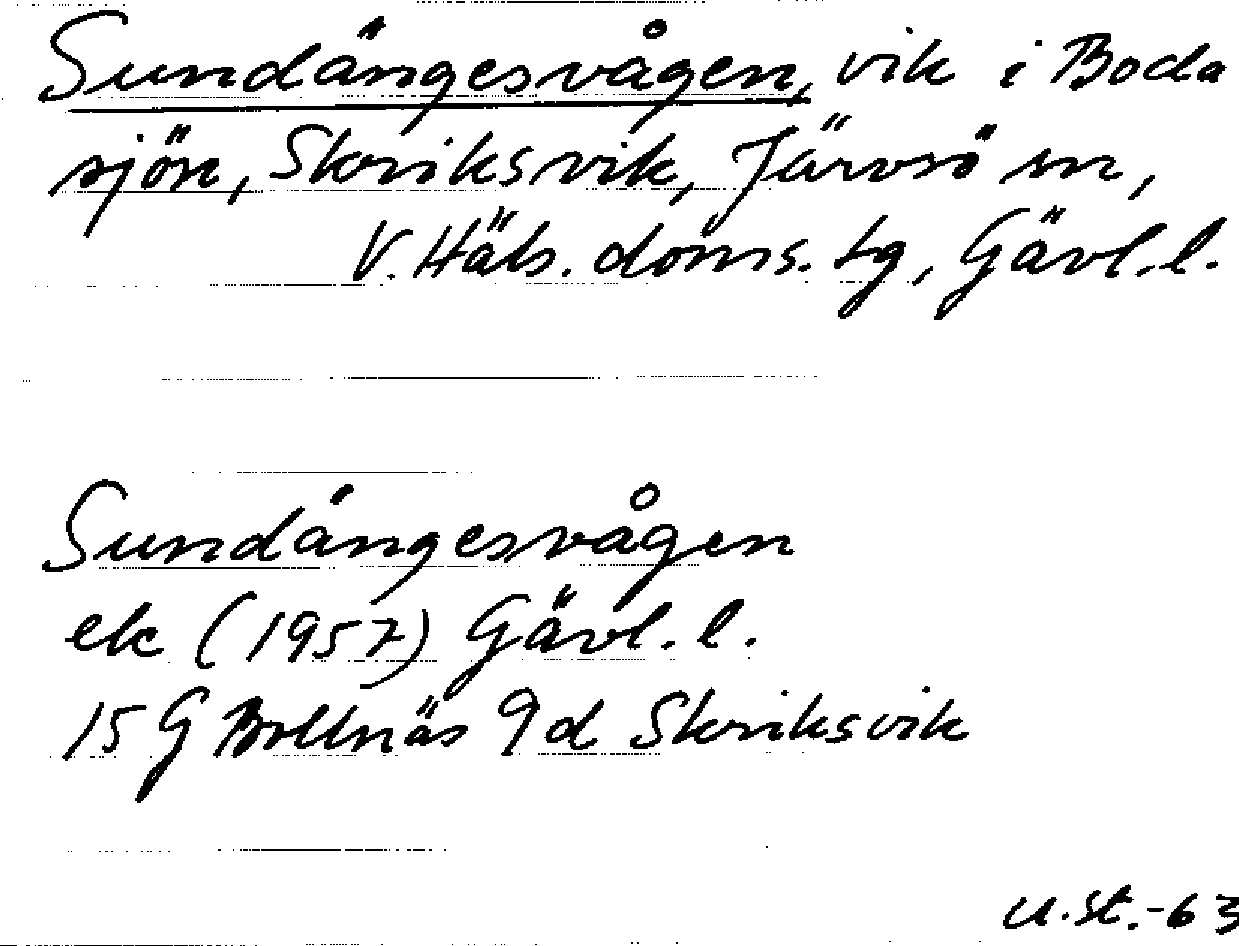 Sundängesvågen, vik i Boda
sjön, Skriksvik, Järvsö sn,
V. Häls. doms. tg, Gävl. l.
Sundängesvågen
ek (1957) Gävl. l.
15 G Bollnäs 9d Skriksvik
U.St.-63